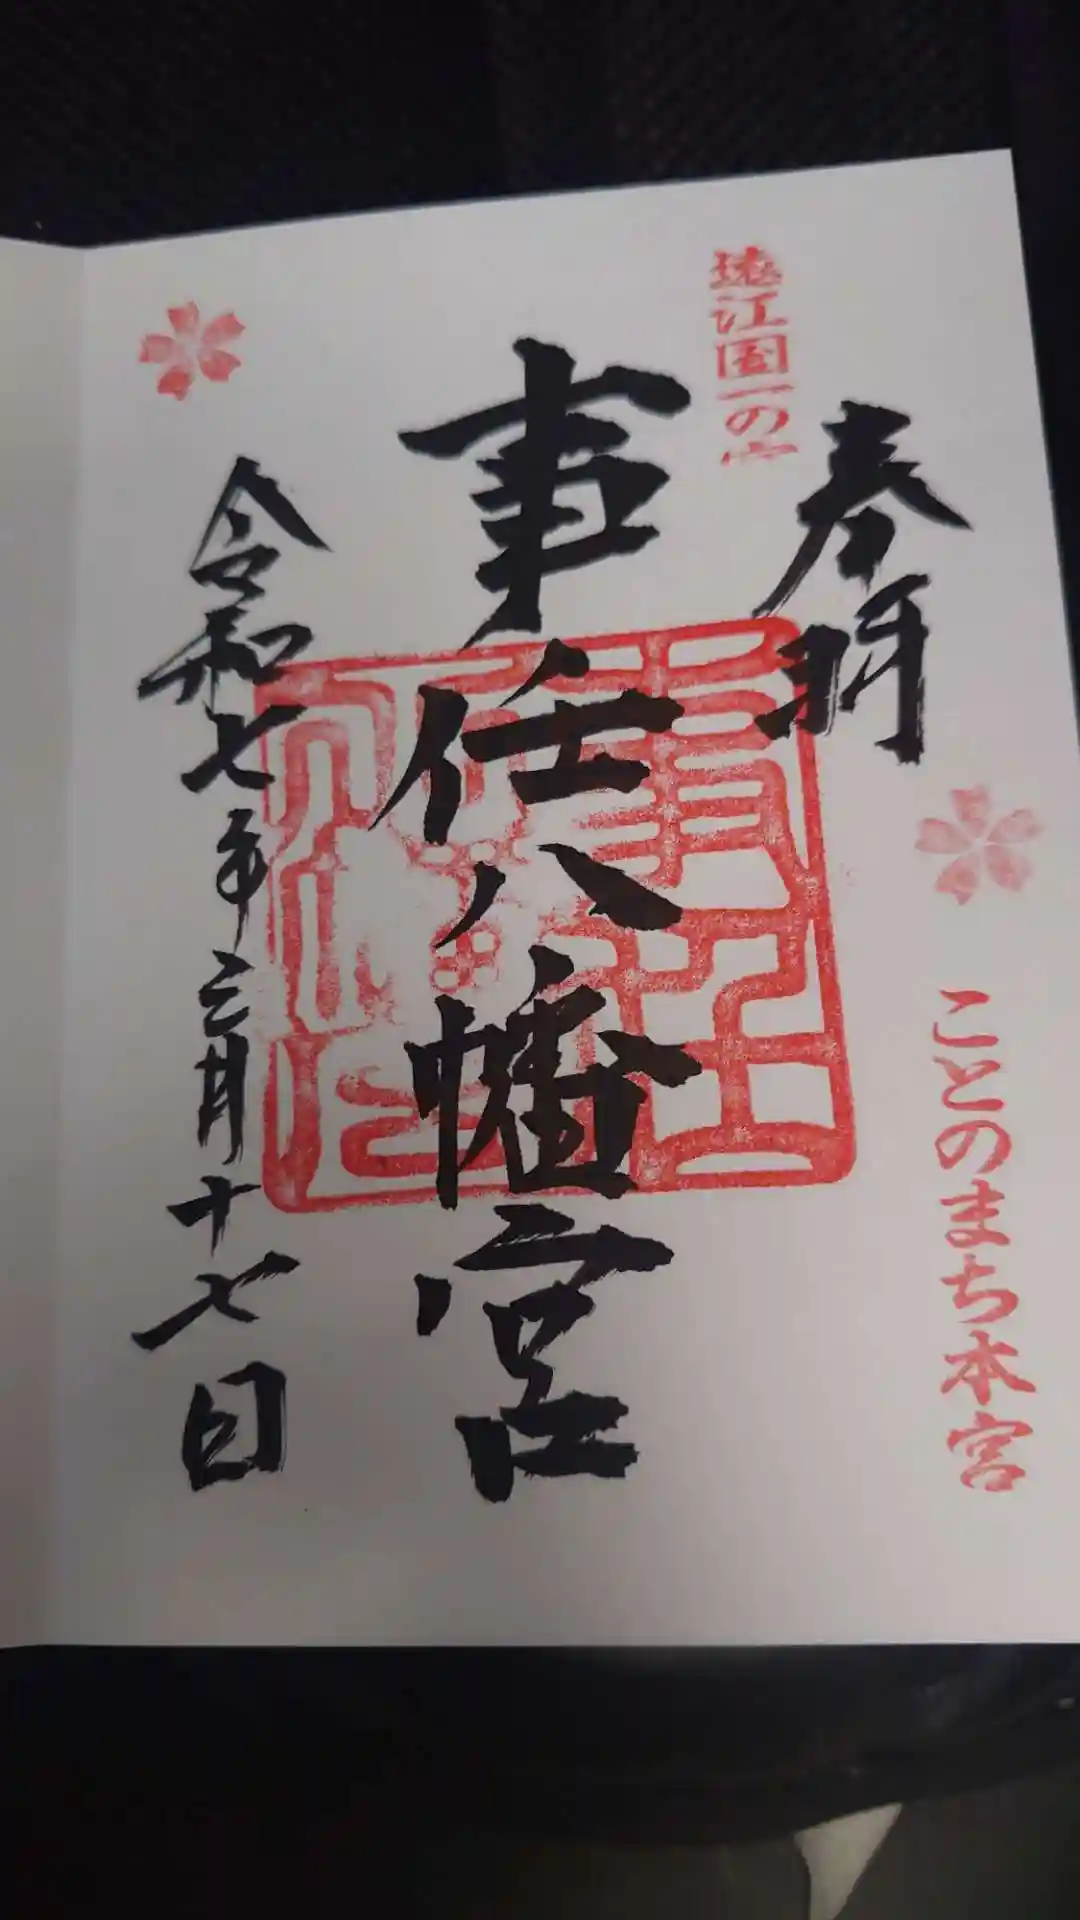 奉拝
ことのまち本宮
遠江国一の宮
事任八幡宮
令和七年三月十七日